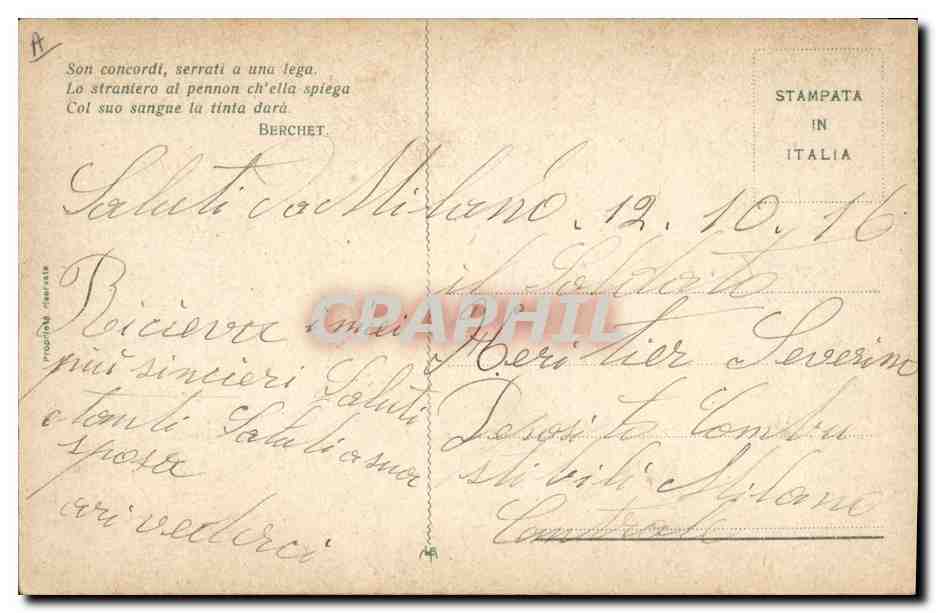 A
Son concordi, serrati a una lega.
Lo straniero al pennon ch'ella spiega
Col suo sangue la tinta darà.
BERCHET.
STAMPATA
IN
ITALIA
Saluti da Milano. 12. 10. 16
Proprietà riservata
Riceva i miei
più sincieri Saluti
e tanti Saluti a sua
sposa
arivederci
il Soldato
Heritier Severino
Deposito Combu
stibili Milano
Centrale
CPAPHIL